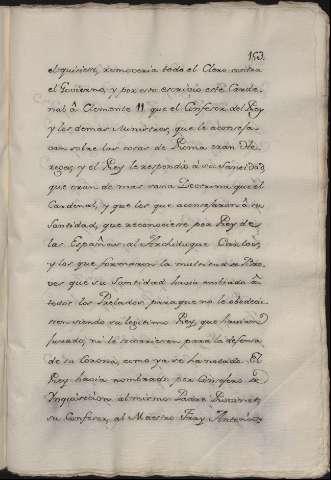 153.
el quisiere, removeria todo el Clero contra
el Govierno, y por esto escrivió este Carde-
nal â Clemente 11 que el Confesor del Rey
y los demas Ministros, que le aconseja-
van sobre las cosas de Roma eran He-
reges, y el Rey le respondió â su Santidad
que eran de mas sana Doctrina que el
Cardenal, y que los que aconsejaron â su
Santidad, que reconociese por Rey de
las Españas al Archiduque Carlos,
y los que formaron la multitud de Bre-
ves que su Santidad havia embiado â
todos los Prelados para que no le obedeci-
esen siendo su legitimo Rey, que havian
jurado, ni le socorriesen para la defensa
de su Corona, como ya se ha notado. El
Rey havia nombrado por Consejero de
Ynquisicion al mismo Padre
su Confesor, al Maestro Fray Antonio